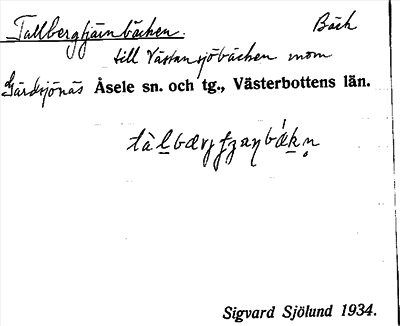 Tallbergtjärnbäcken. Bäck
till Västansjöbäcken inom
Gärdsjönäs Åsele sn. och tg., Västerbottens län.
Sigvard Sjölund 1934.